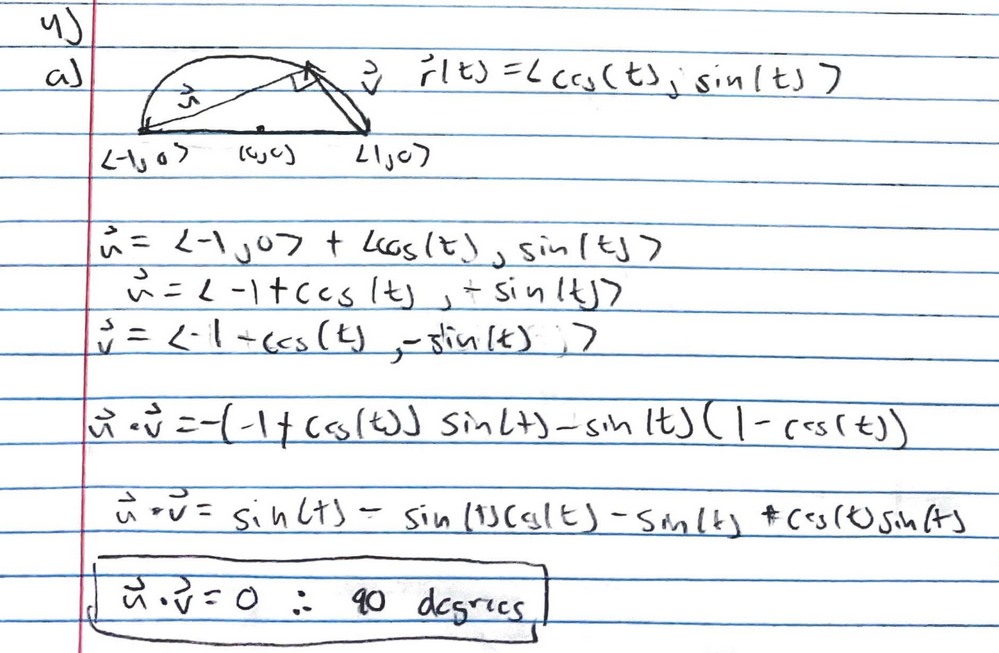 4)
a)
u⃗ v⃗ r⃗(t) = <cos(t), sin(t)>
<-1, 0> (0,0) <1,0>
u⃗ = <-1, 0> + <cos(t), sin(t)>
u⃗ = <-1+cos(t), + sin(t)>
v⃗ = <-1-cos(t), -sin(t)>
u⃗ • v⃗ = -(-1+cos(t)) sin(t) - sin(t)(1-cos(t))
u⃗ • v⃗ = sin(t) - sin(t)cos(t) - sin(t) + cos(t)sin(t)
u⃗ • v⃗ = 0 ∴ 90 degrees